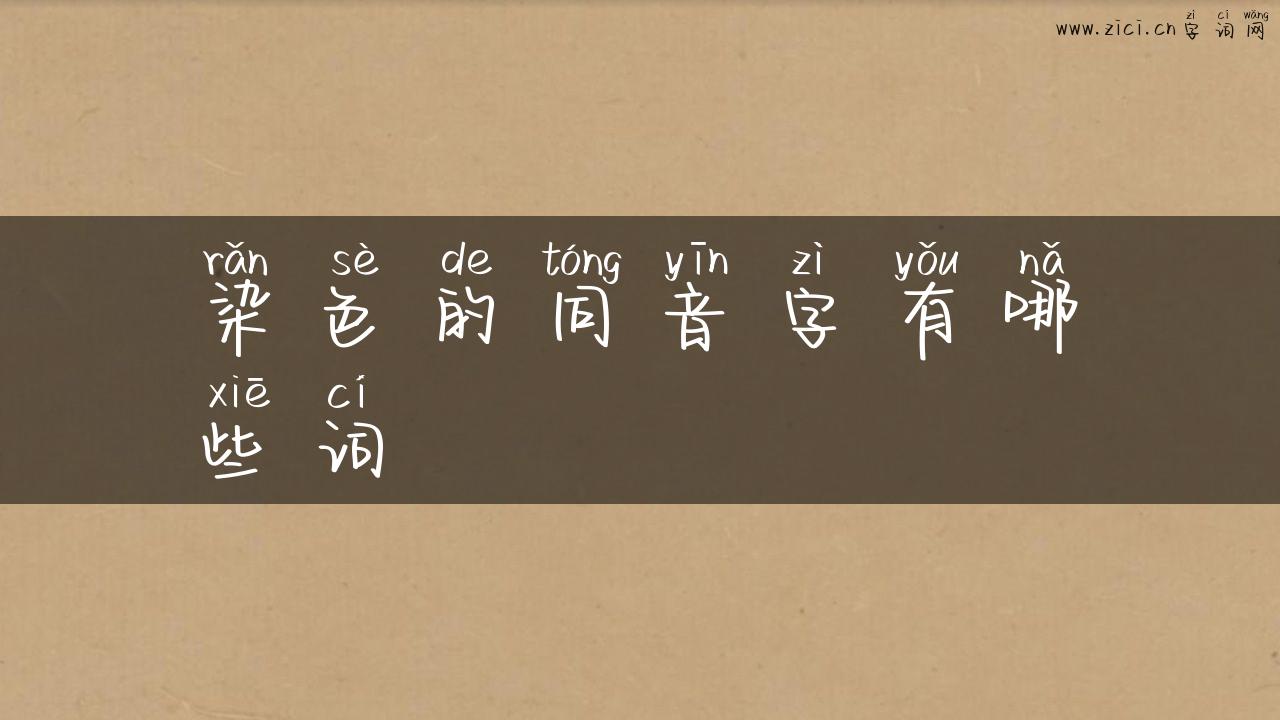 zì cí wǎng
www.zici.cn 字 词 网
rǎn sè de tóng yīn zì yǒu nǎ
染 色 的 同 音 字 有 哪
xiē cí
些 词